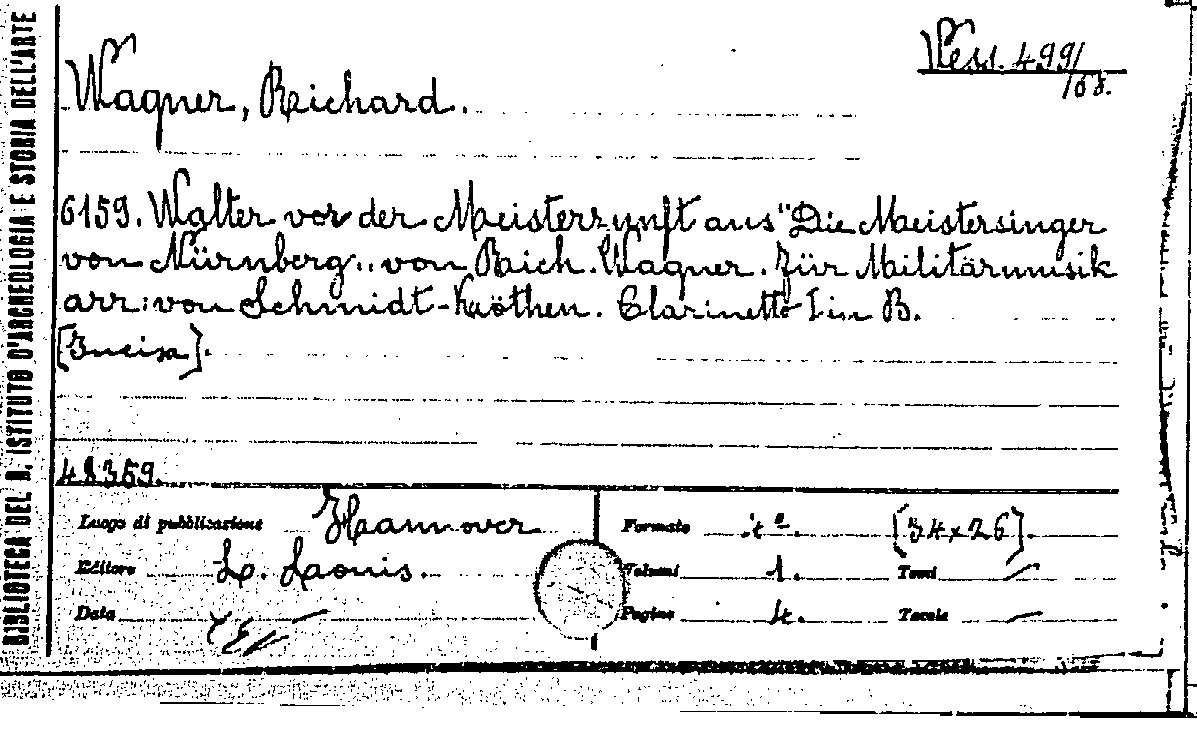 BIBLIOTECA DEL R. ISTITUTO D'ARCHEOLOGIA E STORIA DELL'ARTE
Vess. 499/
/68.
Wagner, Richard.
6159. Walter vor der Meisterzunft aus "Die Meistersinger
von Nürnberg„ von Reich. Wagner. Für Militärmusik
arr: von Schmidt-Köthen. Clarinetto I in B.
[Incisa].
48359.
Luogo di pubblicazione Hannover Formato 4º. [34x26].
Editore L. Laonis. Volumi 1. Tomi —
Data Pagine 4. Tavole —